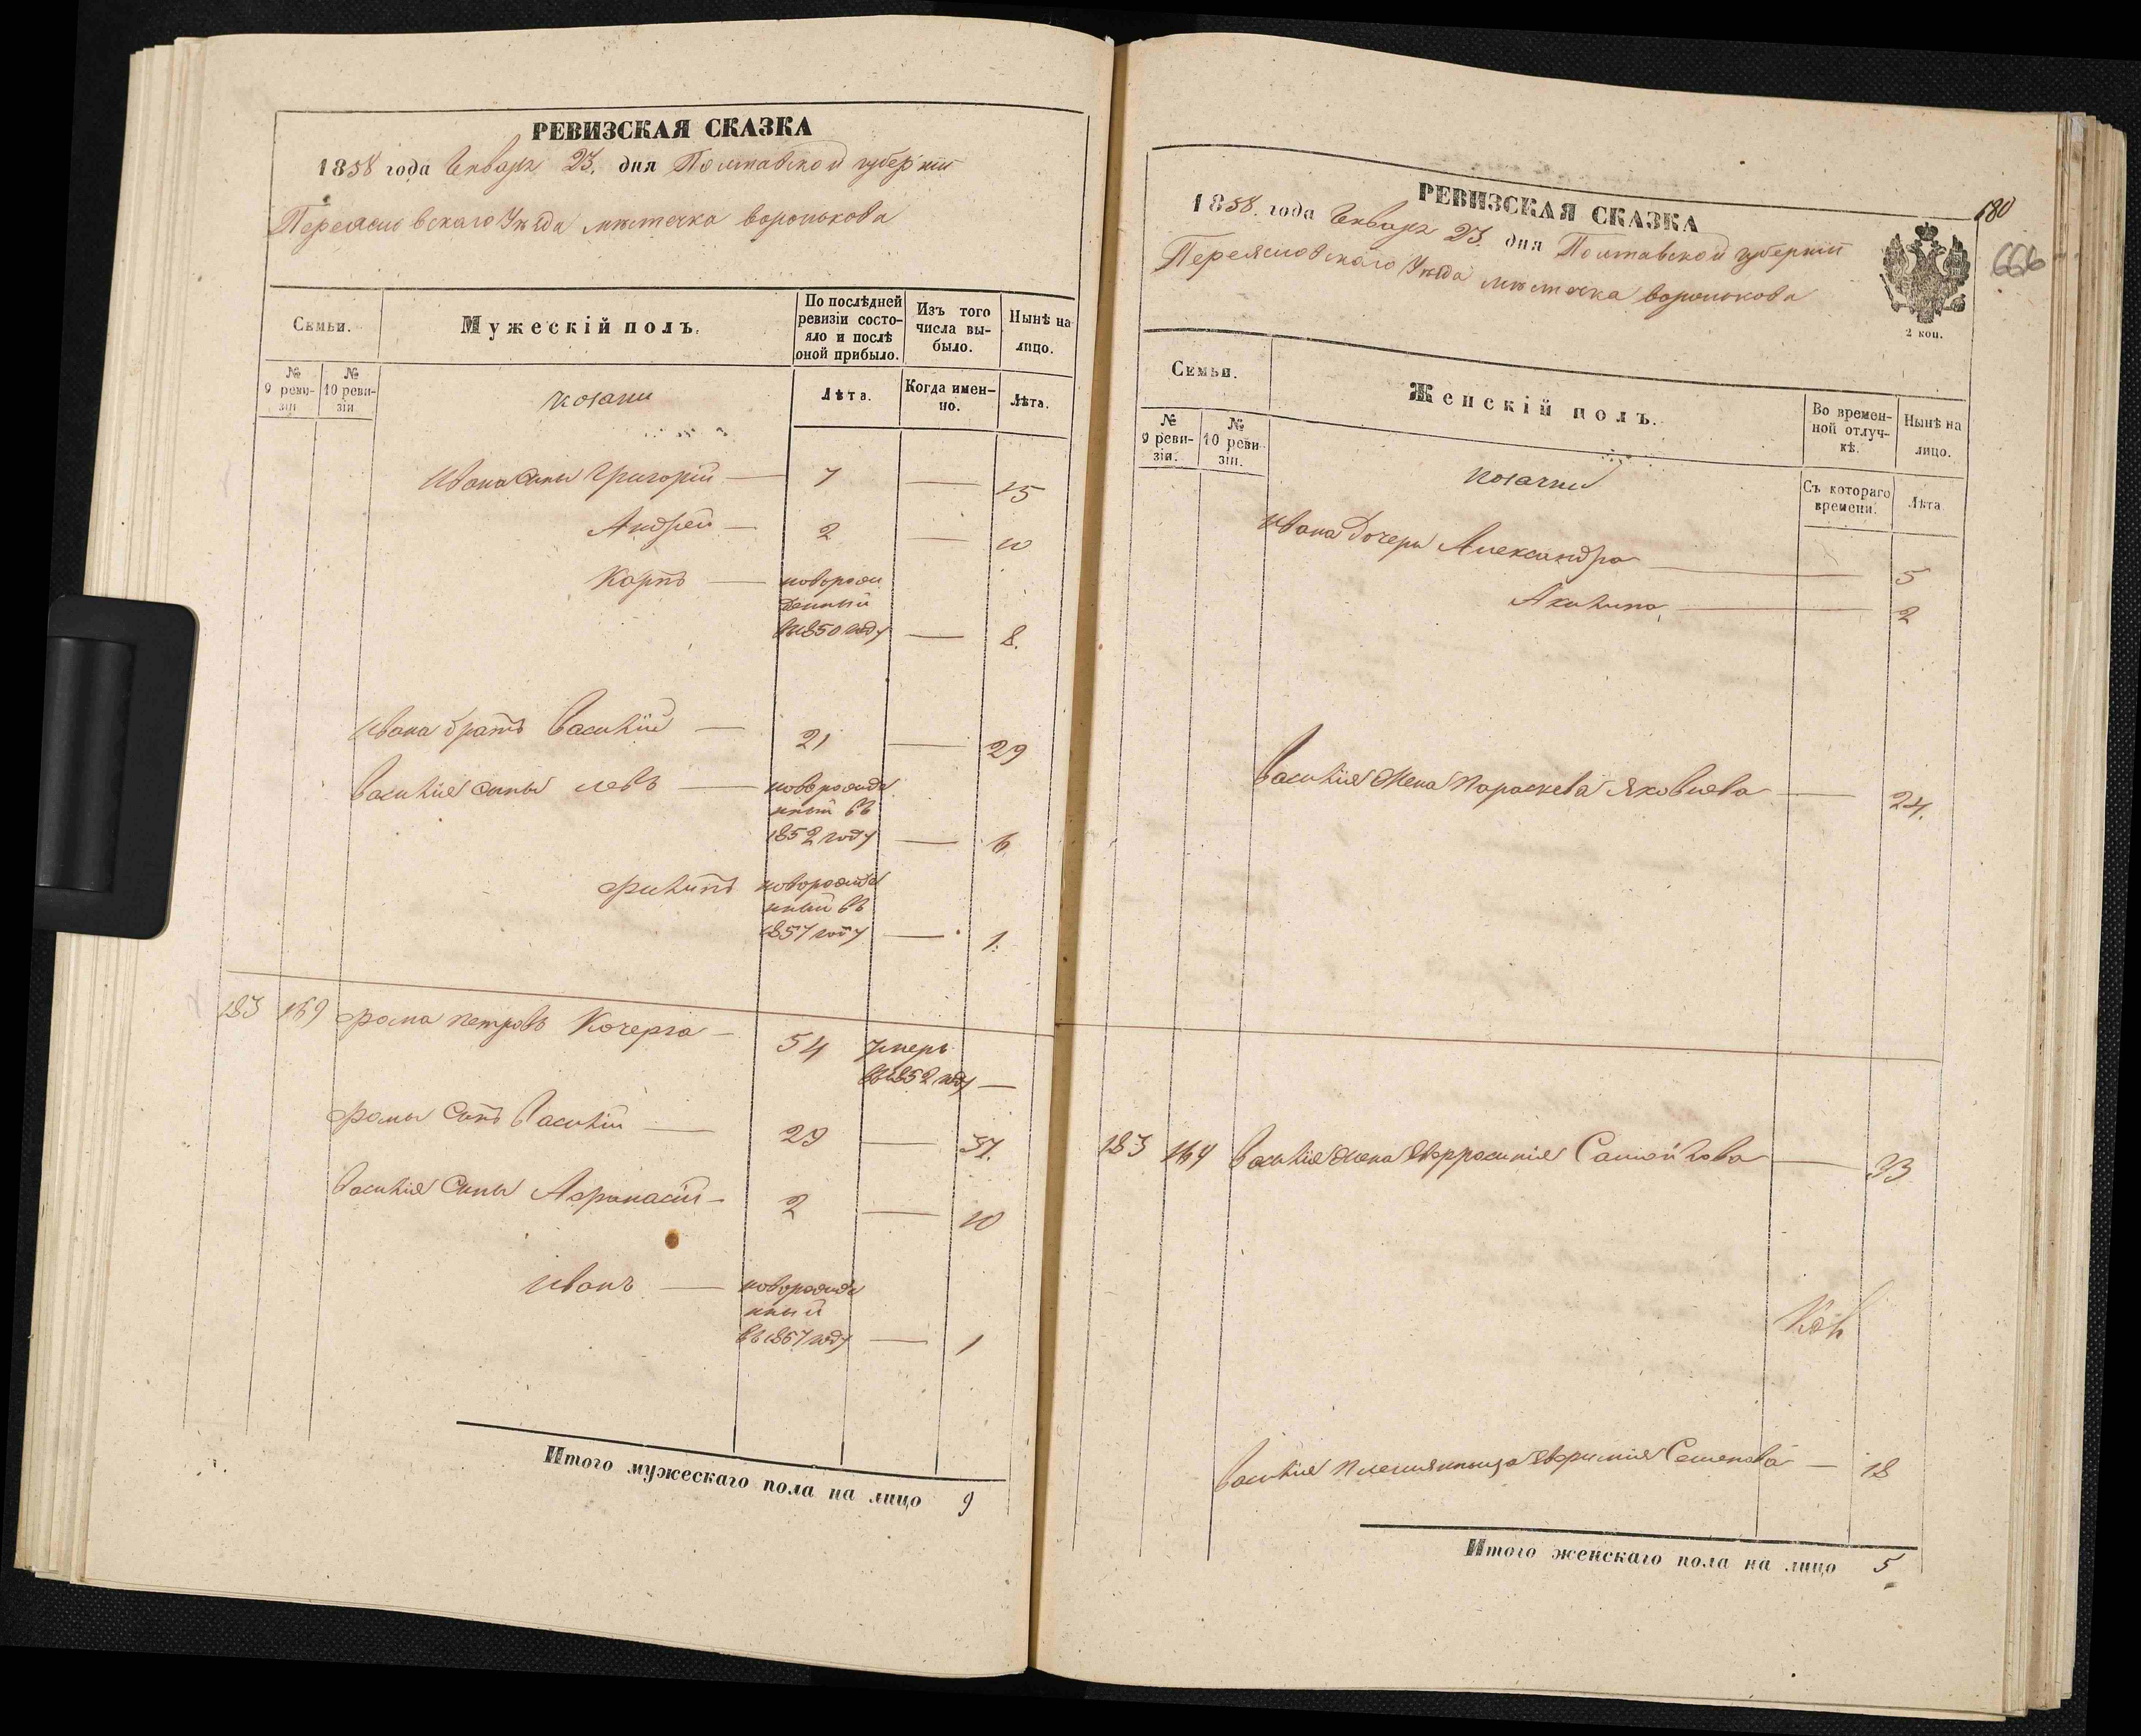 РЕВИЗСКАЯ СКАЗКА
1858 года Января 23. дня Полтавской губерніи
Переяславскаго Уѣзда мѣстечка Воронькова
Семьи.
Мужескій полъ.
По послѣдней ревизіи состояло и послѣ оной прибыло.
Изъ того числа выбыло.
Нынѣ на лицо.
№ 9 ревизіи
№ 10 ревизіи
козаки
Лѣта.
Когда именно.
Лѣта.
Ивана сыны Григорій — 7 — 15
Андрей — 2 — 10
Карпъ — новорож
денный
въ 1850 году — 8.
Ивана братъ Василій — 21 — 29
Василія сыны Левъ — новорожде
нный въ
1852 году — 6
Филипъ новорожде
нный въ
1857 году — 1.
183 169 Фома Петровъ Кочерга — 54 умеръ
въ 1852 году —
Фомы Сынъ Василій — 29 — 37.
Василія Сыны Афанасій — 2 — 10
Иванъ — новорожде
нный
въ 1857 году — 1
Итого мужескаго пола на лицо 9
180
666
РЕВИЗСКАЯ СКАЗКА
1858. года Января 23. дня Полтавской губерніи
Переяславскаго Уѣзда мѣстечка Воронькова
2 коп.
Семьи.
Женскій полъ.
Во временной отлучкѣ.
Нынѣ на лицо.
№ 9 ревизіи.
№ 10 ревизіи.
козачки
Съ котораго времени.
Лѣта
Ивана Дочери Александра — 5
Акилина — 2
Василія Жена Параскева Яковлева — 24.
183 169 Василія Жена Евфросинія Самойлова — 33
Василія племянница Евфимія Семенова — 18
Итого женскаго пола на лицо 5